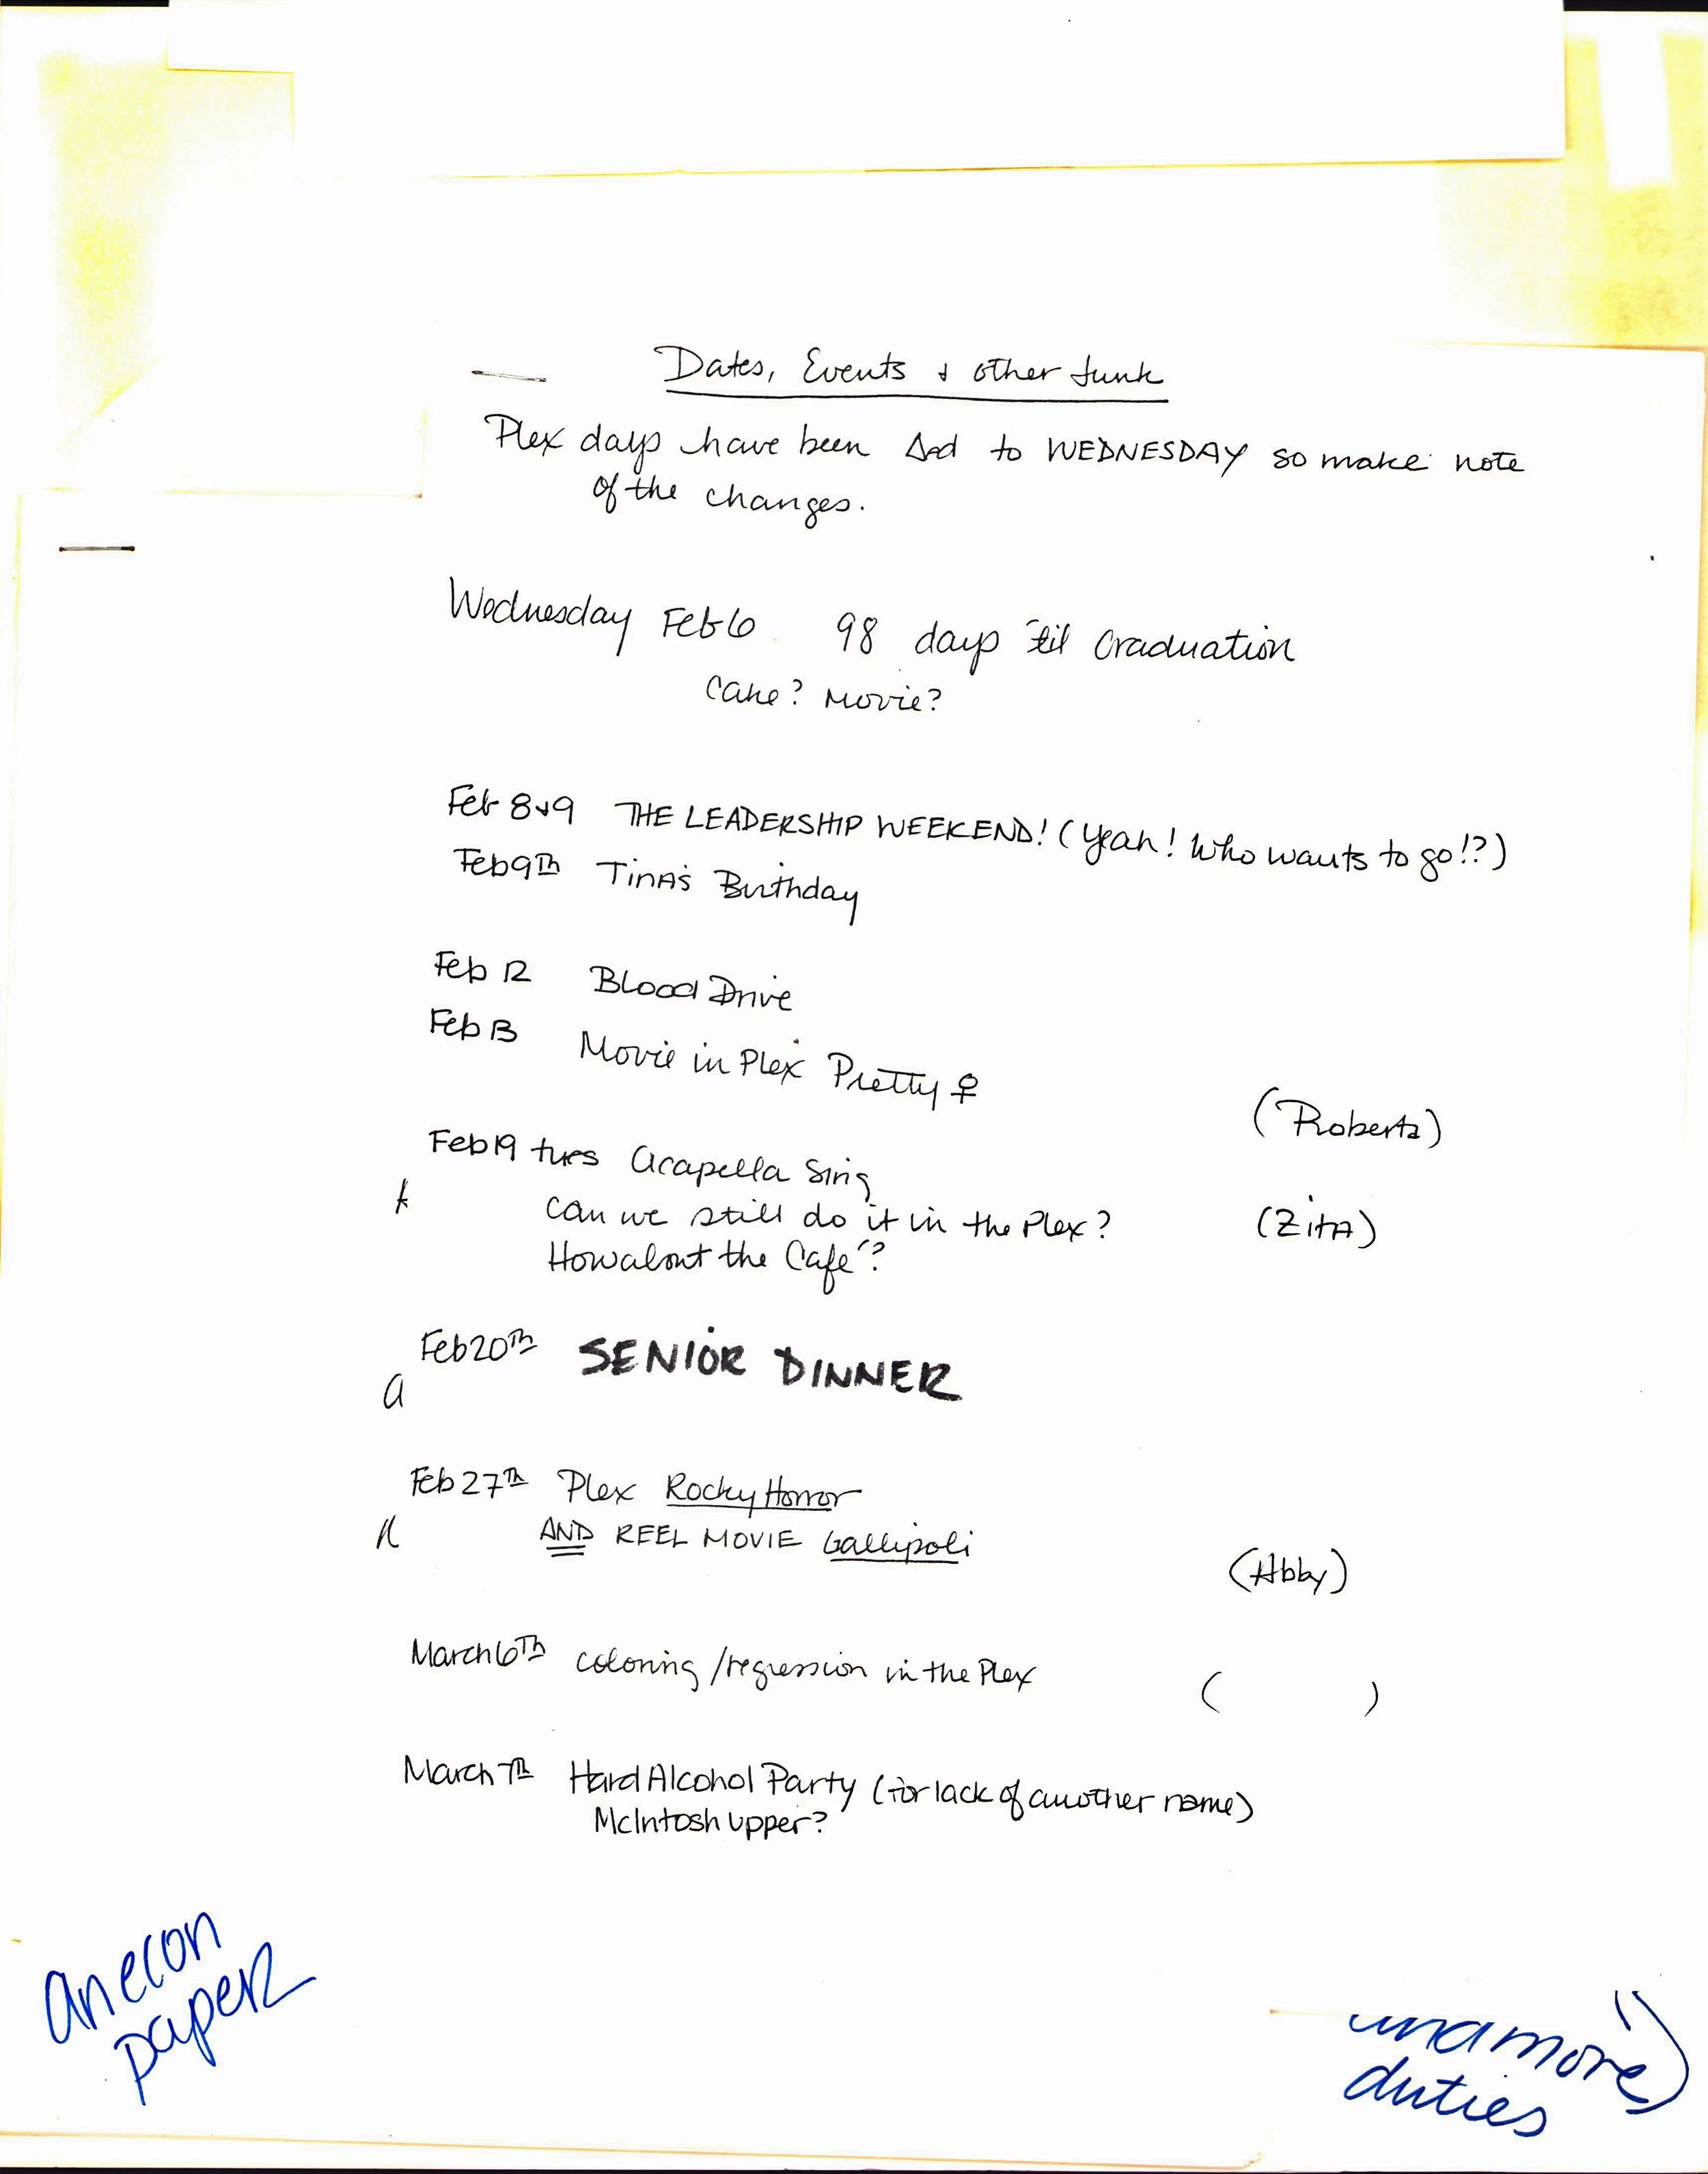 Dates, Events & other Junk
Plex days have been Δed to WEDNESDAY so make note
of the changes.
Wednesday Feb 6 98 days 'til Graduation
Cake? Movie?
Feb 8&9 THE LEADERSHIP WEEKEND! (Yeah! Who wants to go!?)
Feb 9th Tina's Birthday
Feb 12 Blood Drive
Feb 13 Movie in Plex Pretty ♀
(Roberta)
Feb 19 tues Acapella Sing
can we still do it in the Plex? (Zita)
How about the Café?
Feb 20th SENIOR DINNER
a
Feb 27th Plex Rocky Horror
AND REEL MOVIE Gallipoli
(Abby)
March 6th coloring/regression in the Plex
( )
March 7th Hard Alcohol Party (for lack of another name)
McIntosh upper?
an econ
paper
more)
duties